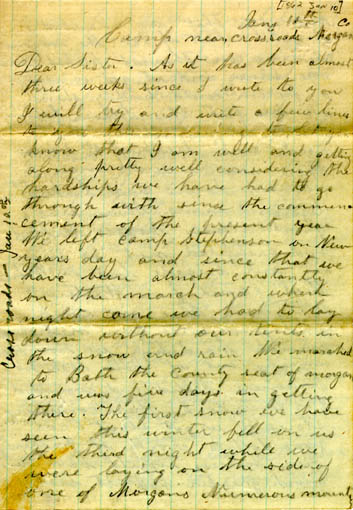 [1862 Jan 10]
Jany 10th
Camp near cross roads Morgan Co
Dear Sister. As it has been almost
three weeks since I wrote to you
I will try and write a few lines
to
know that I am well and getting
along pretty well considering the
hardships we have had to go
through with since the commen
cement of the present year
We left camp Stephenson on New
years day and since that we
have been almost constantly
on the march and when
night come we had to lay
down without our tents in
the snow and rain We marched
to Bath the County seat of morgan
and was five days in getting
there. The first snow we have
seen this winter fell on us
the third night while we
were laying on the side of
one of Morgans Numerous mounts
Cross roads - Jan 10th